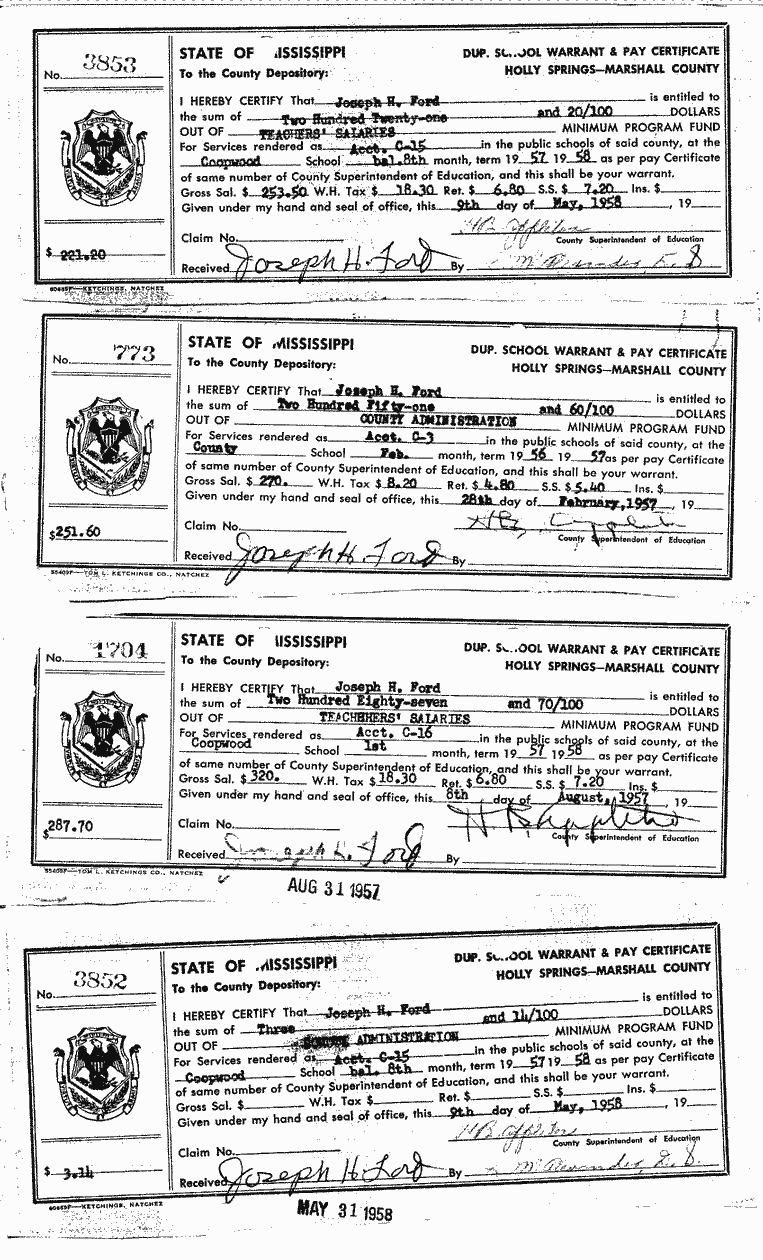 No. 3853
STATE OF MISSISSIPPI
To the County Depository:
DUP. SCHOOL WARRANT & PAY CERTIFICATE
HOLLY SPRINGS—MARSHALL COUNTY
I HEREBY CERTIFY That Joseph H. Ford is entitled to
the sum of Two Hundred Twenty-one and 20/100 DOLLARS
OUT OF TEACHERS' SALARIES MINIMUM PROGRAM FUND
For Services rendered as Acct. C-15 in the public schools of said county, at the
Coopwood School bal. 8th month, term 19 57 19 58 as per pay Certificate
of same number of County Superintendent of Education, and this shall be your warrant.
Gross Sal. $ 253.50 W.H. Tax $ 18.30 Ret. $ 6.80 S.S. $ 7.20 Ins. $
Given under my hand and seal of office, this 9th day of May, 1958, 19
Claim No.
County Superintendent of Education
$ 221.20
Received Joseph H. Ford By
KETCHINGS, NATCHEZ
No. 773
STATE OF MISSISSIPPI
To the County Depository:
DUP. SCHOOL WARRANT & PAY CERTIFICATE
HOLLY SPRINGS—MARSHALL COUNTY
I HEREBY CERTIFY That Joseph H. Ford is entitled to
the sum of Two Hundred Fifty-one and 60/100 DOLLARS
OUT OF COUNTY ADMINISTRATION MINIMUM PROGRAM FUND
For Services rendered as Acct. C-3 in the public schools of said county, at the
County School Feb. month, term 19 56 19 57 as per pay Certificate
of same number of County Superintendent of Education, and this shall be your warrant.
Gross Sal. $ 270. W.H. Tax $ 8.20 Ret. $ 4.80 S.S. $ 5.40 Ins. $
Given under my hand and seal of office, this 28th day of February, 1957, 19
Claim No.
County Superintendent of Education
$251.60
Received Joseph H. Ford By
55409F—TOM L. KETCHINGS CO., NATCHEZ
No. 1704
STATE OF MISSISSIPPI
To the County Depository:
DUP. SCHOOL WARRANT & PAY CERTIFICATE
HOLLY SPRINGS—MARSHALL COUNTY
I HEREBY CERTIFY That Joseph H. Ford is entitled to
the sum of Two Hundred Eighty-seven and 70/100 DOLLARS
OUT OF TEACHHERS' SALARIES MINIMUM PROGRAM FUND
For Services rendered as Acct. C-16 in the public schools of said county, at the
Coopwood School 1st month, term 19 57 19 58 as per pay Certificate
of same number of County Superintendent of Education, and this shall be your warrant.
Gross Sal. $ 320. W.H. Tax $ 18.30 Ret. $ 6.80 S.S. $ 7.20 Ins. $
Given under my hand and seal of office, this 8th day of August, 1957, 19
Claim No.
County Superintendent of Education
$287.70
Received Joseph H. Ford By
55409F—TOM L. KETCHINGS CO., NATCHEZ
AUG 31 1957
No. 3852
STATE OF MISSISSIPPI
To the County Depository:
DUP. SCHOOL WARRANT & PAY CERTIFICATE
HOLLY SPRINGS—MARSHALL COUNTY
I HEREBY CERTIFY That Joseph H. Ford is entitled to
the sum of Three and 14/100 DOLLARS
OUT OF COUNTY ADMINISTRATION MINIMUM PROGRAM FUND
For Services rendered as Acct. C-15 in the public schools of said county, at the
Coopwood School bal. 8th month, term 19 57 19 58 as per pay Certificate
of same number of County Superintendent of Education, and this shall be your warrant.
Gross Sal. $ W.H. Tax $ Ret. $ S.S. $ Ins. $
Given under my hand and seal of office, this 9th day of May, 1958, 19
Claim No.
County Superintendent of Education
$ 3.14
Received Joseph H. Ford By
KETCHINGS, NATCHEZ
MAY 31 1958